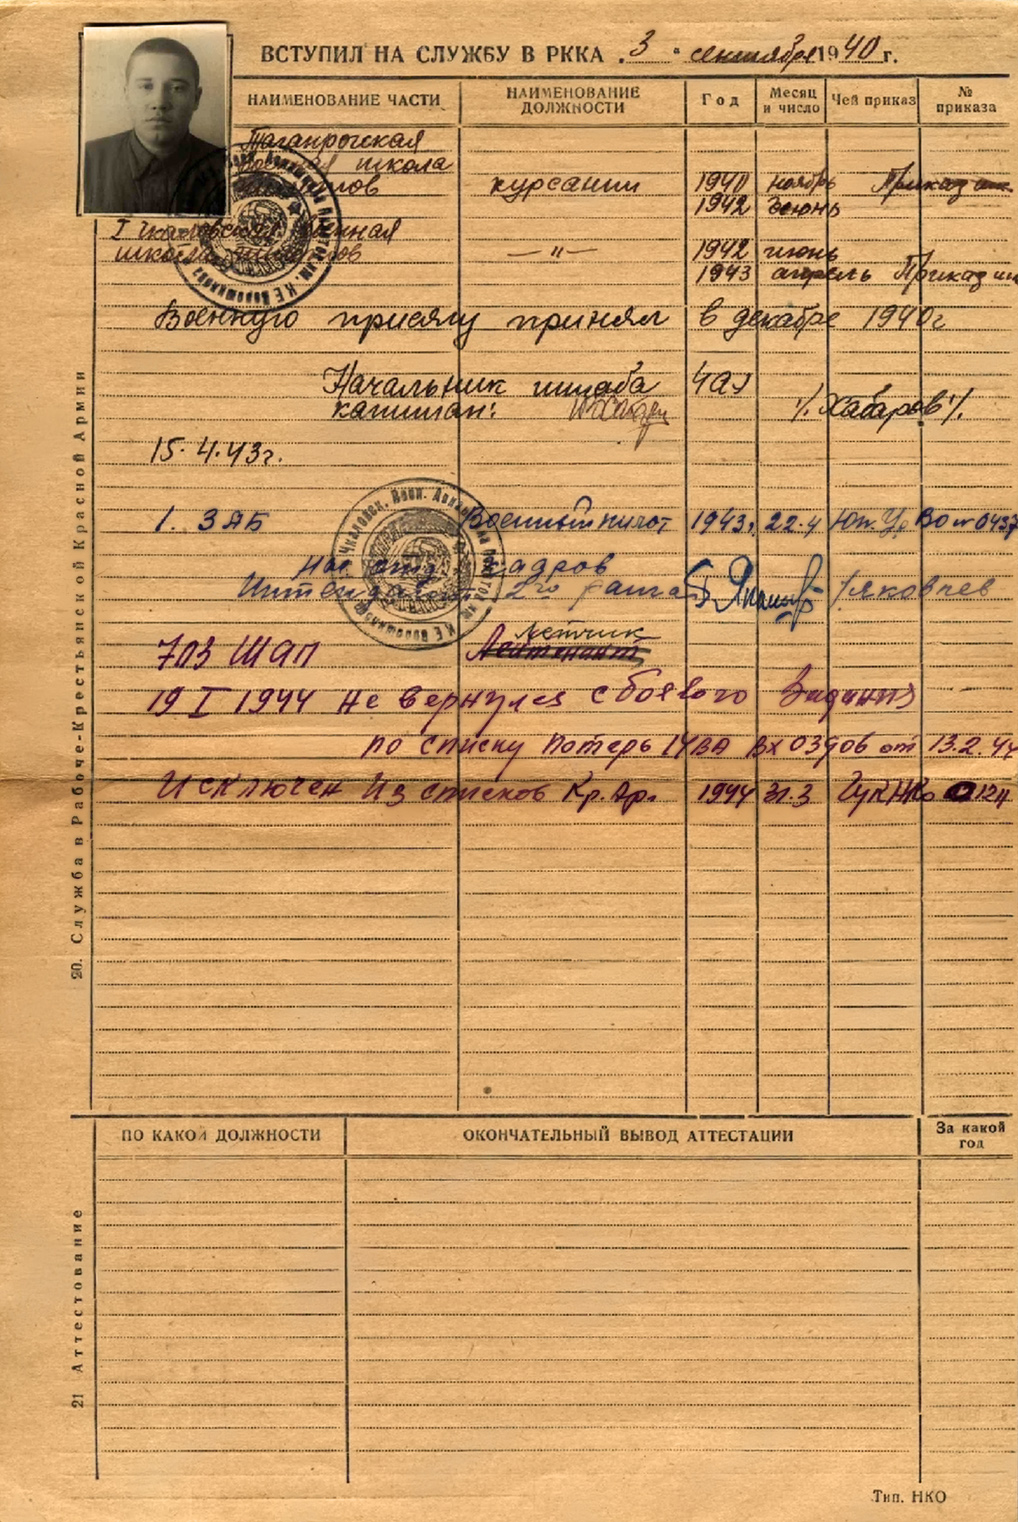 ВСТУПИЛ НА СЛУЖБУ В РККА 3 " сентября 1940 г.
НАИМЕНОВАНИЕ ЧАСТИ НАИМЕНОВАНИЕ ДОЛЖНОСТИ Год Месяц и число Чей приказ № приказа
Таганрогская
школа
курсант 1940 ноябрь Приказ
1942 июнь
I военная
школа — " — 1942 июнь
1943 апрель Приказ
Военную присягу принял в декабре 1940г
Начальник штаба
капитан: /Хабаров/.
15.4.43г.
1. ЗАБ Военный пилот 1943г. 22.4 ВО № 0437
Нач отд. кадров
Интендант 2го ранга /Яковчев
Летчик
703 ШАП Лейтенант
19 I 1944 Не вернулся с боевого Задания
по списку потерь 14ВА Вх 03906 от 13.2.44
Исключен Из списков Кр. Ар. 1944 31.3 ГУК НКО
20. Служба в Рабоче-Крестьянской Красной Армии
ПО КАКОЙ ДОЛЖНОСТИ ОКОНЧАТЕЛЬНЫЙ ВЫВОД АТТЕСТАЦИИ За какой год
21 Аттестование
Тип. НКО